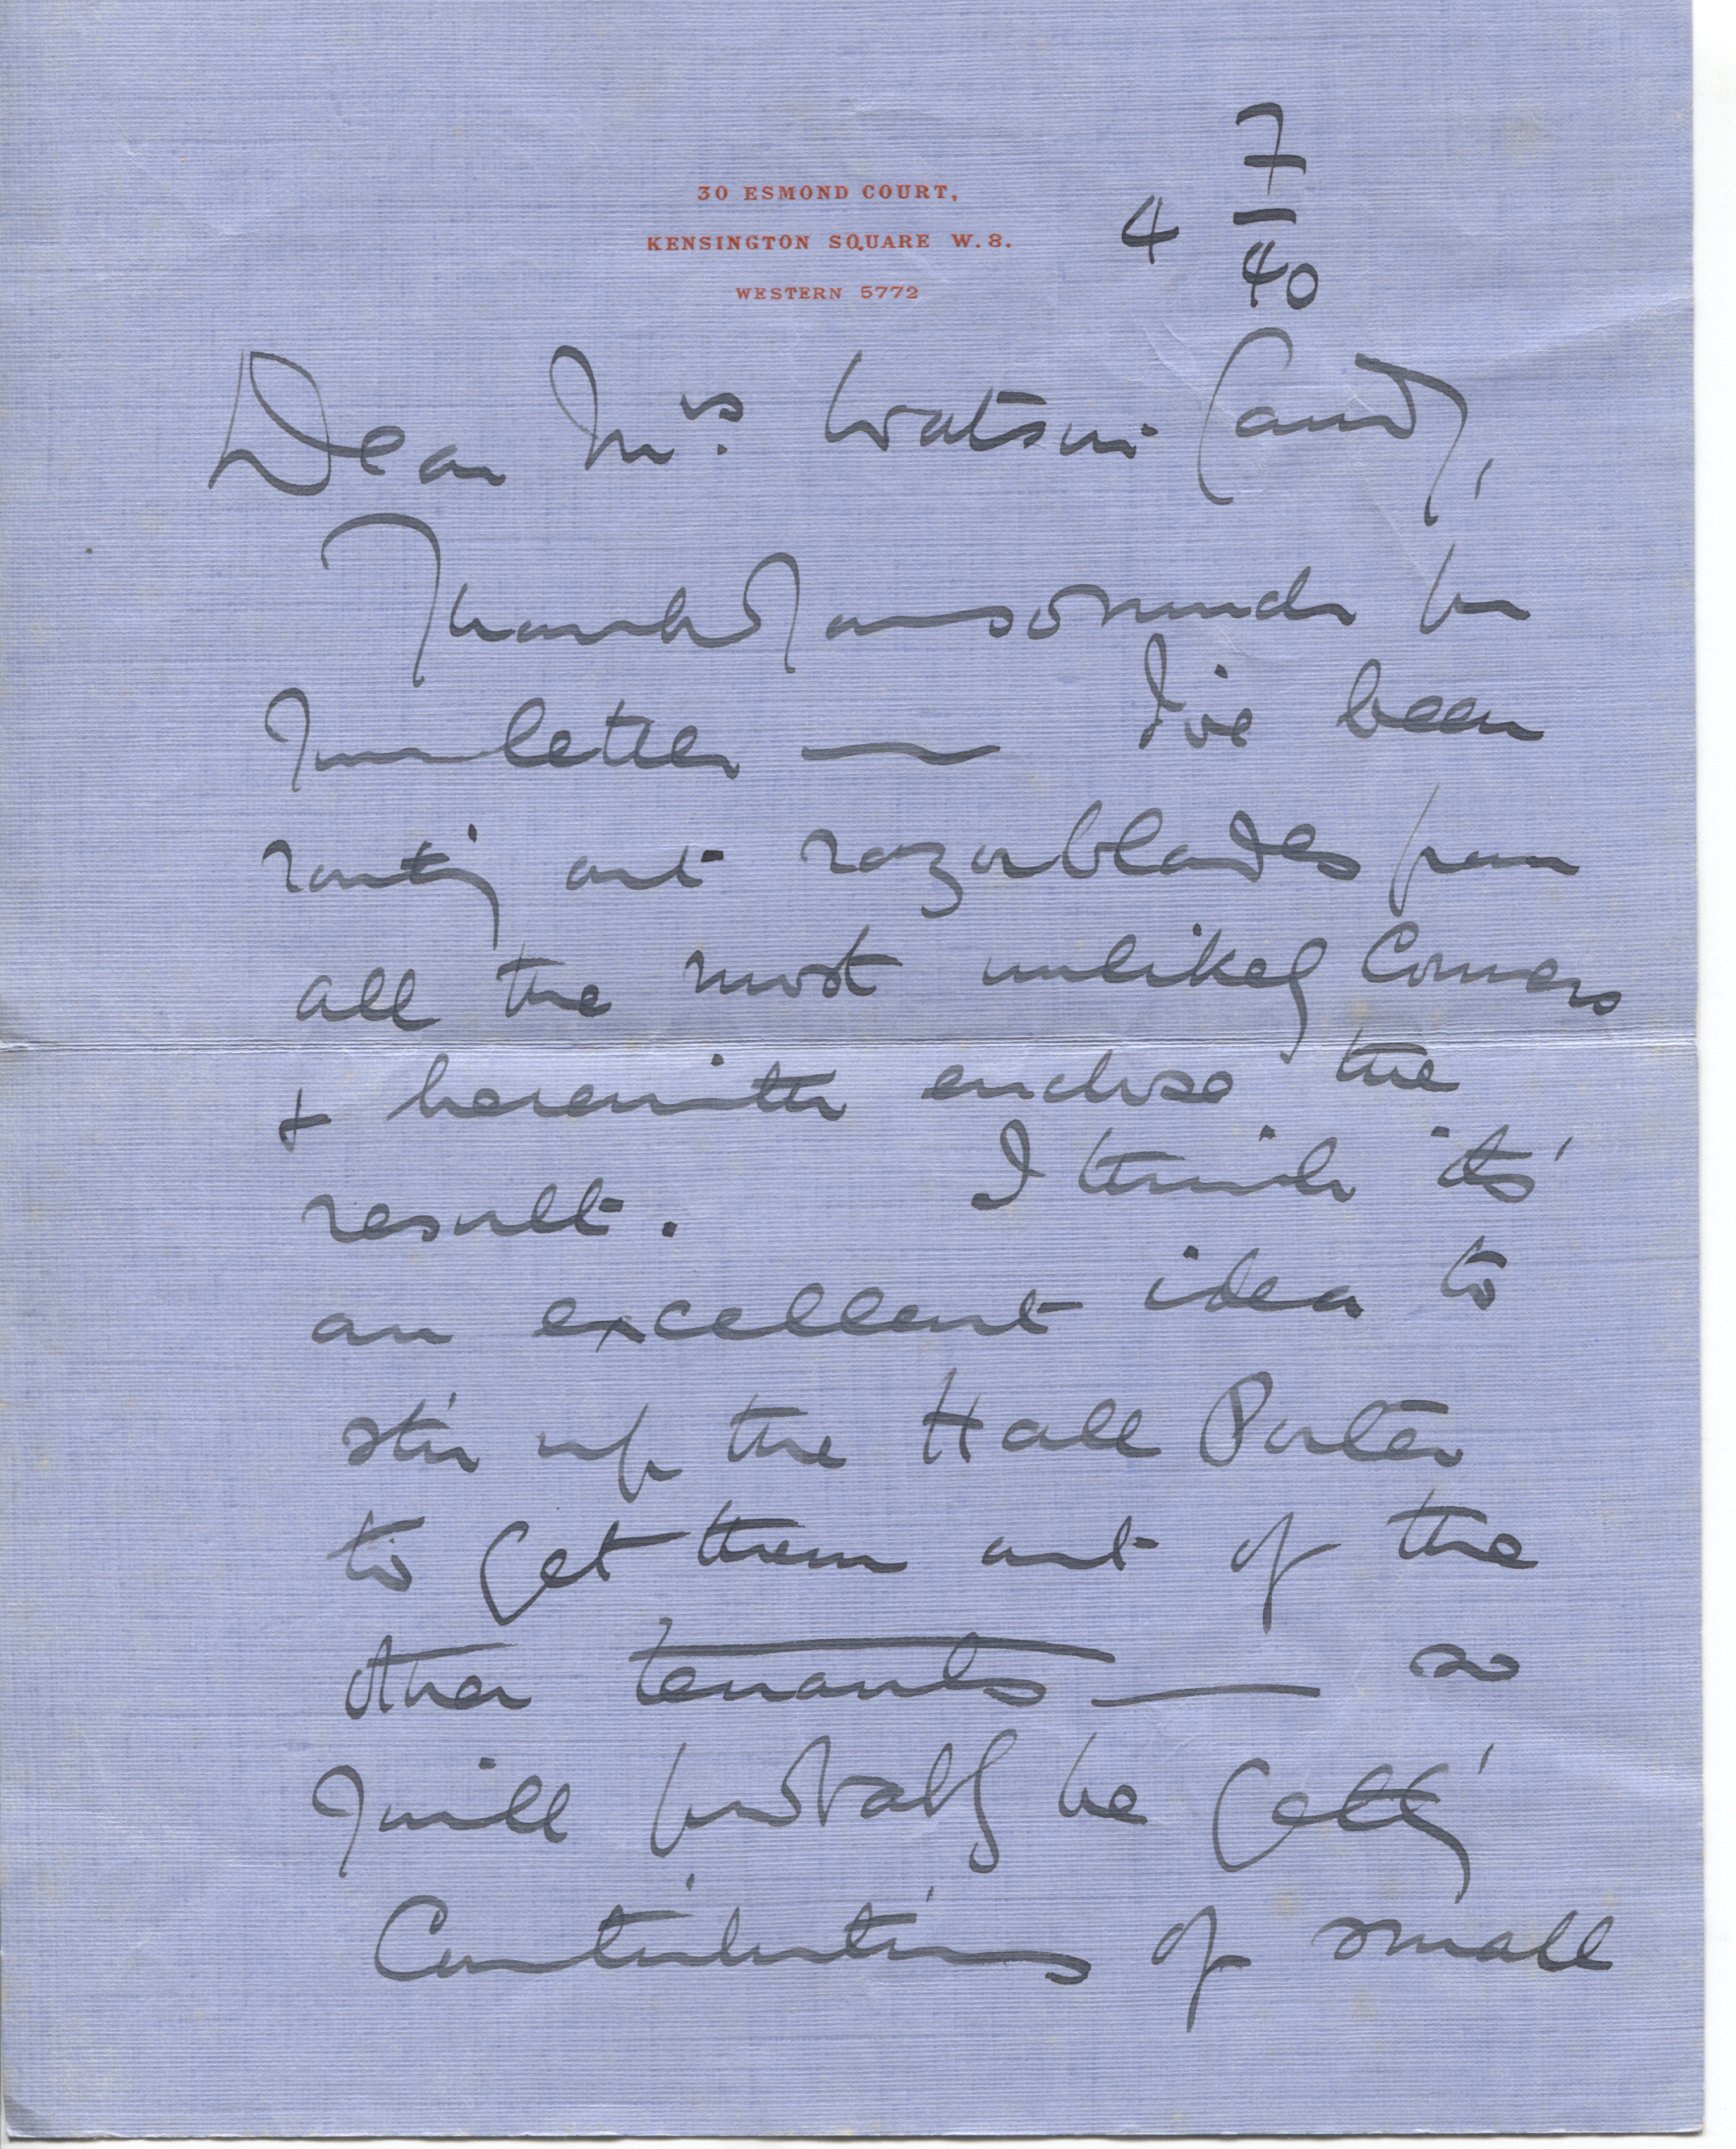 30 ESMOND COURT,
KENSINGTON SQUARE W.8.
WESTERN 5772
4 7/40
Dear Mrs. Watson
Thank you so much for
your letter — I've been
routing out razorblades from
all the most unlikely Corners
+ herewith enclose the
result. I think its'
an excellent idea to
stir up the Hall Porter
to get them out of the
other tenants — so
I will probably be getting
Contributions of small